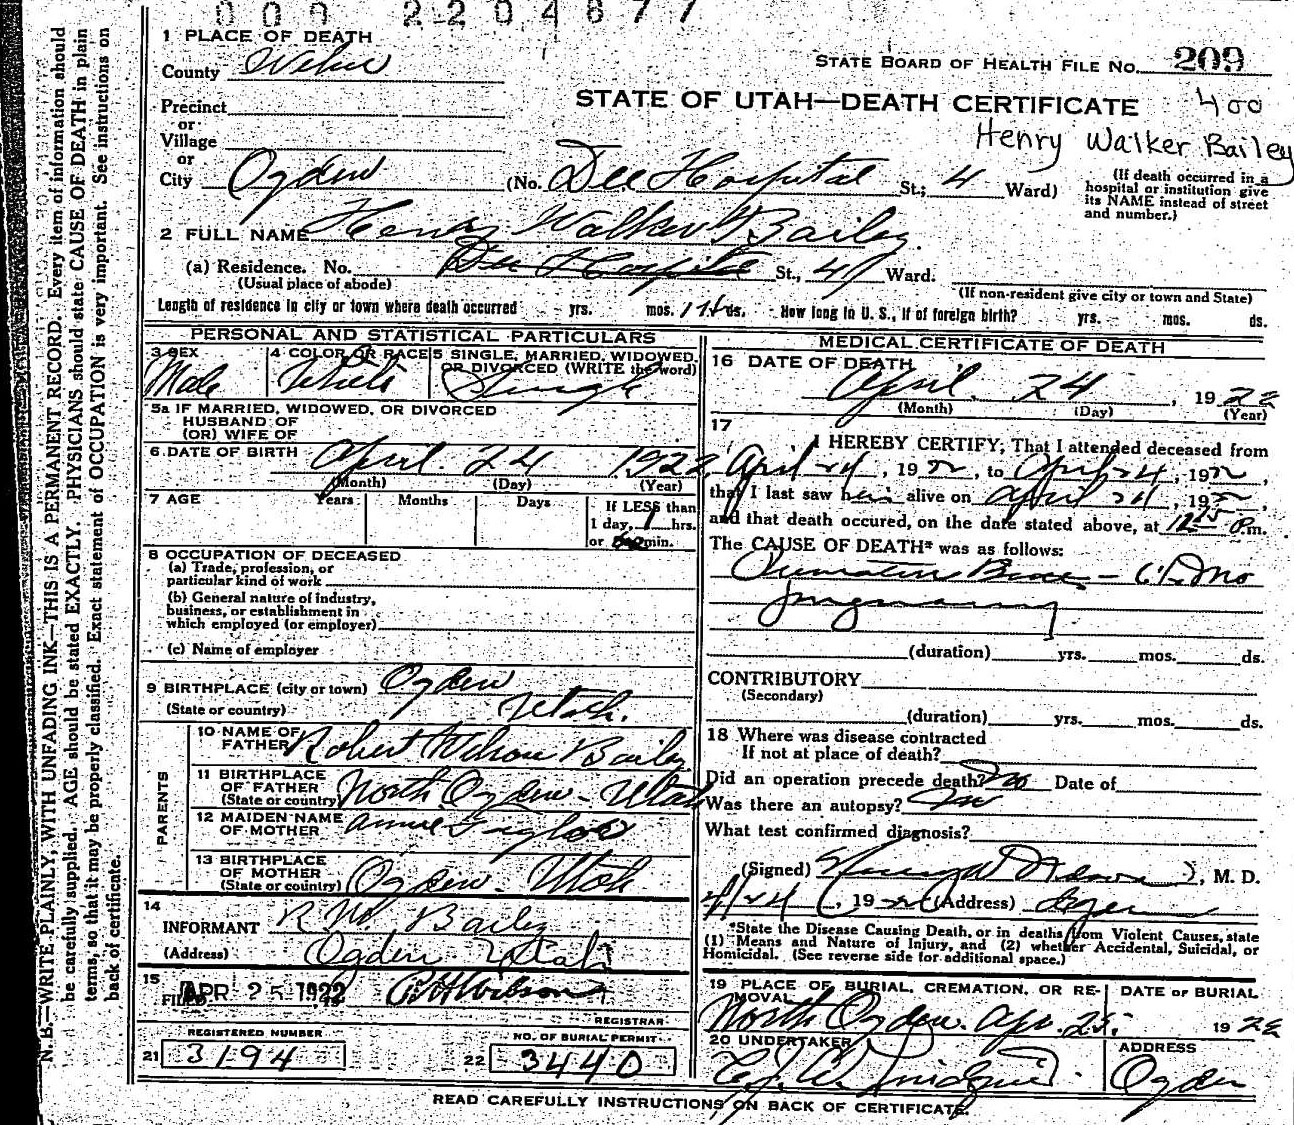 000 2204677
1 PLACE OF DEATH
County Weber
STATE BOARD OF HEALTH FILE No. 209
Precinct
or
Village
or
STATE OF UTAH—DEATH CERTIFICATE 400
Henry Walker Bailey
City Ogden (No. Dee Hospital St.; 4 Ward)
(If death occurred in a hospital or institution give its NAME instead of street and number.)
2 FULL NAME Henry Walker Bailey
(a) Residence. No. Dee Hospital St., 4 Ward.
(Usual place of abode)
(If non-resident give city or town and State)
Length of residence in city or town where death occurred yrs. mos. ds. How long in U. S., if of foreign birth? yrs. mos. ds.
PERSONAL AND STATISTICAL PARTICULARS
3 SEX Male
4 COLOR OR RACE White
5 SINGLE, MARRIED, WIDOWED, OR DIVORCED (WRITE the word) Single
5a IF MARRIED, WIDOWED, OR DIVORCED
HUSBAND OF
(OR) WIFE OF
6 DATE OF BIRTH April 24 1922
(Month) (Day) (Year)
7 AGE Years Months Days
If LESS than
1 day, 1 hrs.
or min.
8 OCCUPATION OF DECEASED
(a) Trade, profession, or
particular kind of work
(b) General nature of industry,
business, or establishment in
which employed (or employer)
(c) Name of employer
9 BIRTHPLACE (city or town) Ogden
(State or country) Utah.
PARENTS
10 NAME OF
FATHER Robert Wilson Bailey
11 BIRTHPLACE
OF FATHER
(State or country) North Ogden - Utah
12 MAIDEN NAME
OF MOTHER Annie
13 BIRTHPLACE
OF MOTHER
(State or country) Ogden - Utah
14
INFORMANT R W Bailey
(Address) Ogden Utah
15
FILED APR 25 1922 Wilson
REGISTRAR
REGISTERED NUMBER
21 3194
NO. OF BURIAL PERMIT
22 3440
MEDICAL CERTIFICATE OF DEATH
16 DATE OF DEATH
April 24, 1922
(Month) (Day) (Year)
17
I HEREBY CERTIFY, That I attended deceased from
April 24, 1922, to April 24, 1922,
that I last saw him alive on April 24, 1922,
and that death occured, on the date stated above, at 12 15 P.m.
The CAUSE OF DEATH* was as follows:
Premature Birth - 6½ mo
pregnancy
(duration) yrs. mos. ds.
CONTRIBUTORY
(Secondary)
(duration) yrs. mos. ds.
18 Where was disease contracted
If not at place of death?
Did an operation precede death? no Date of
Was there an autopsy? no
What test confirmed diagnosis?
(Signed) , M. D.
4/24, 1922 (Address) Ogden
*State the Disease Causing Death, or in deaths from Violent Causes, state
(1) Means and Nature of Injury, and (2) whether Accidental, Suicidal, or
Homicidal. (See reverse side for additional space.)
19 PLACE OF BURIAL, CREMATION, OR REMOVAL
North Ogden.
DATE OF BURIAL
Apr. 25. 1922
20 UNDERTAKER
ADDRESS
Ogden
READ CAREFULLY INSTRUCTIONS ON BACK OF CERTIFICATE.
N. B.—WRITE PLAINLY, WITH UNFADING INK—THIS IS A PERMANENT RECORD. Every item of information should
be carefully supplied. AGE should be stated EXACTLY. PHYSICIANS should state CAUSE OF DEATH in plain
terms, so that it may be properly classified. Exact statement of OCCUPATION is very important. See instructions on
back of certificate.